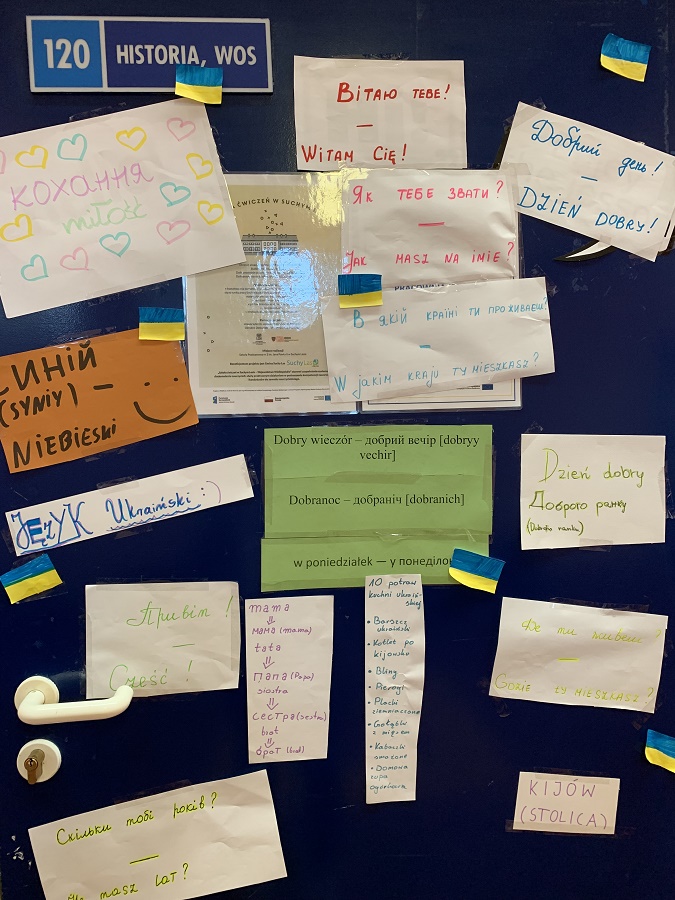 120
HISTORIA, WOS
Вітаю тебе!
—
Witam Cię!
Добрий день!
—
Dzień dobry!
кохання
miłość
Як тебе звати?
—
Jak masz na imię?
В якій країні ти проживаєш?
—
W jakim kraju ty mieszkasz?
ĆWICZEŃ W SUCHYM
SuchyLas
синій
(syniy) —
Niebieski
Dobry wieczór – добрий вечір [dobryy
vechir]
Dobranoc – добраніч [dobranich]
w poniedziałek — у понеділок
Dzień dobry
Доброго ранку
Język Ukraiński :)
Привіт!
—
Cześć!
mama
мама (mama)
tata
Папа (Papa)
siostra
сестра (sestra)
brat
брат (brat)
10 potraw
kuchni ukraiń-
skiej
• Barszcz
ukraiński
• Kotlet po
kijowsku
• Bliny
• Pierogi
• Placki
ziemniaczane
• Gołąbki
z mięsem
• Kabaczki
smażone
• Domowa
zupa
ogórkowa
Де ти живеш?
—
Gdzie ty mieszkasz?
KIJÓW
(STOLICA)
Скільки тобі років?
—
masz lat?